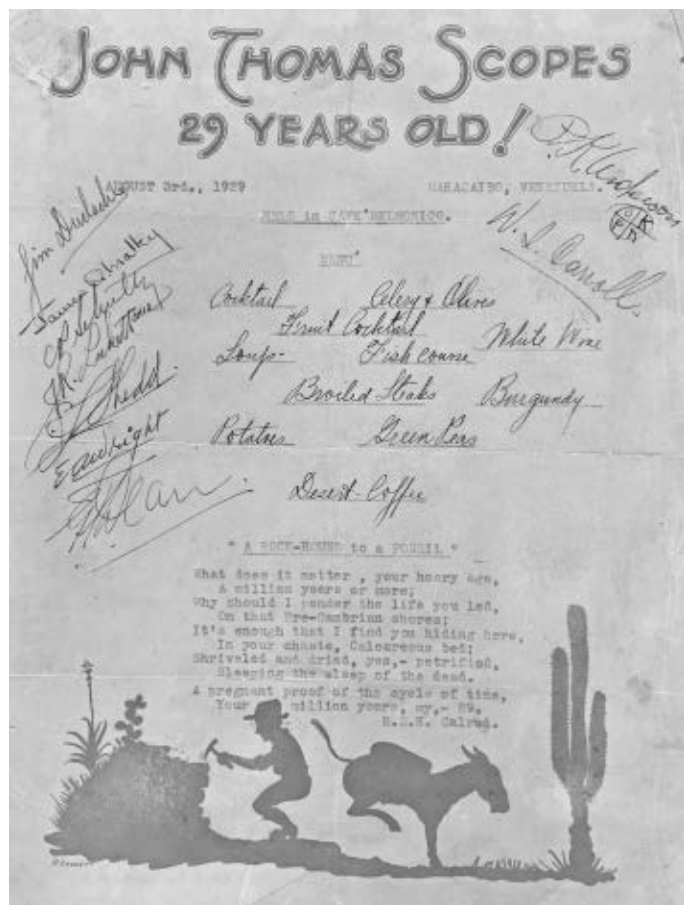 JOHN THOMAS SCOPES
29 YEARS OLD!
AUGUST 3rd., 1929 MARACAIBO, VENEZUELA.
in CAFE
MENU
Cocktail Celery & Olives
Fruit Cocktail White Wine
Soup- Fish course
Broiled Steaks Burgundy
Potatoes Green Peas
Desert-Coffee
W. L. Carroll.
Jim
E A Wright
" A ROCK-HOUND to a FOSSIL "
What does it matter , your hoary age,
A million years or more;
Why should I ponder the life you led,
On that Pre-Cambrian shores;
It's enough that I find you hiding here,
In your chaste, Calcareous bed;
Shriveled and dried, yes,- petrified,
Sleeping the sleep of the dead.
A pregnant proof of the cycle of time,
Your million years, my,- 29.